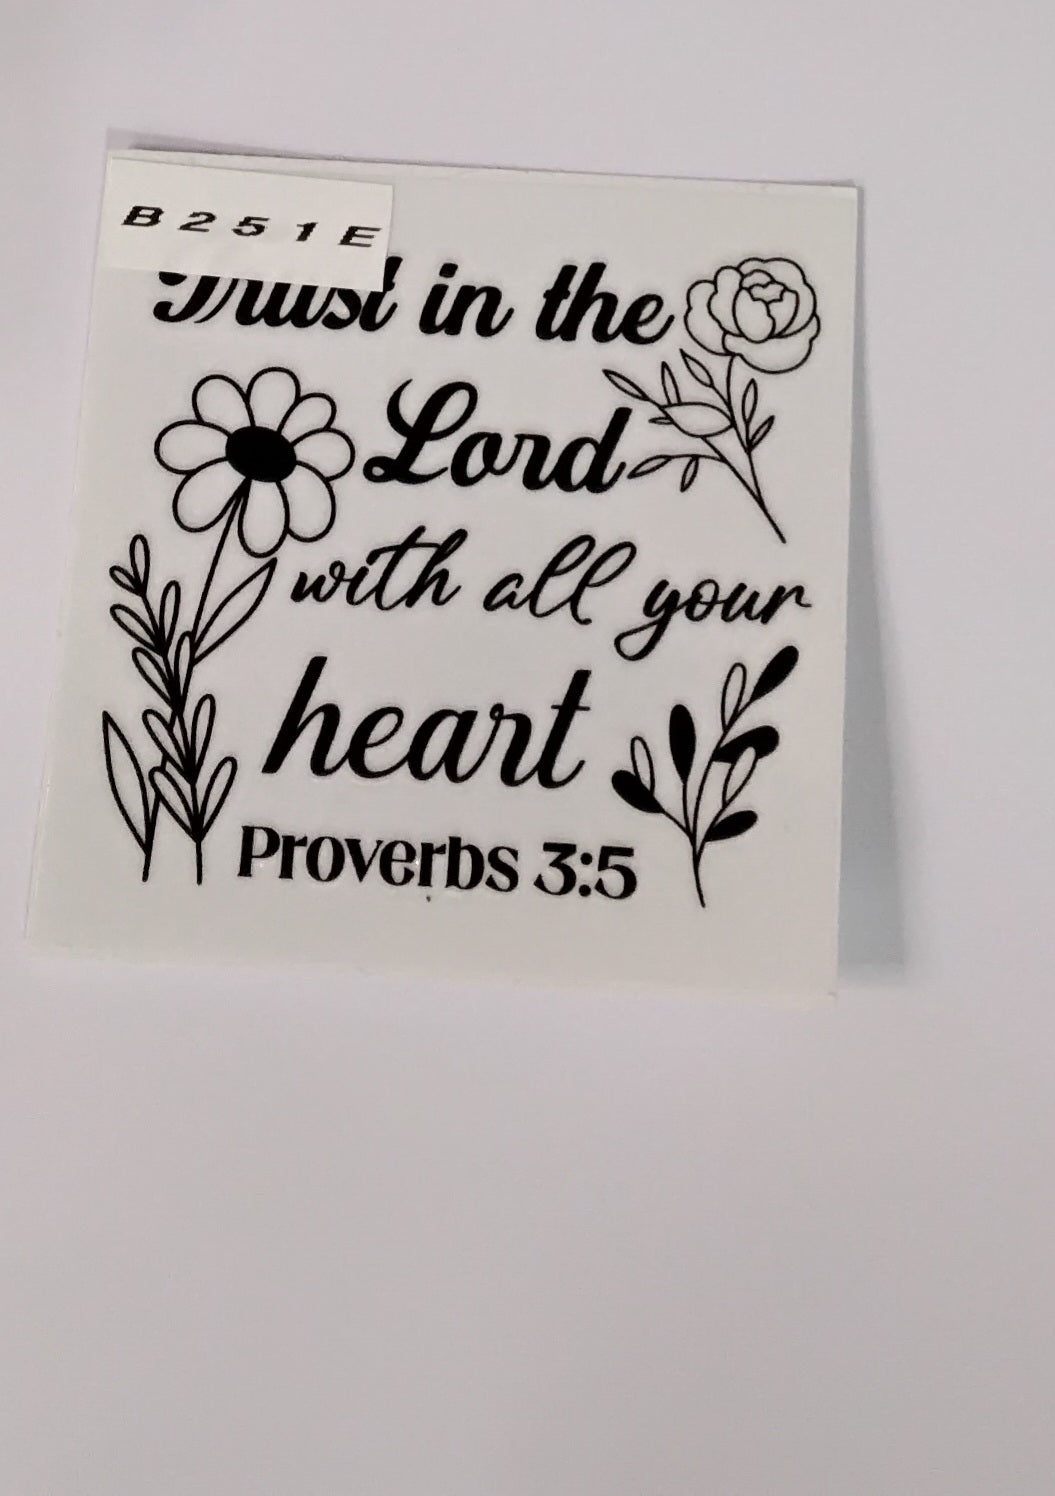 B251E
Trust in the
Lord
with all your
heart
Proverbs 3:5